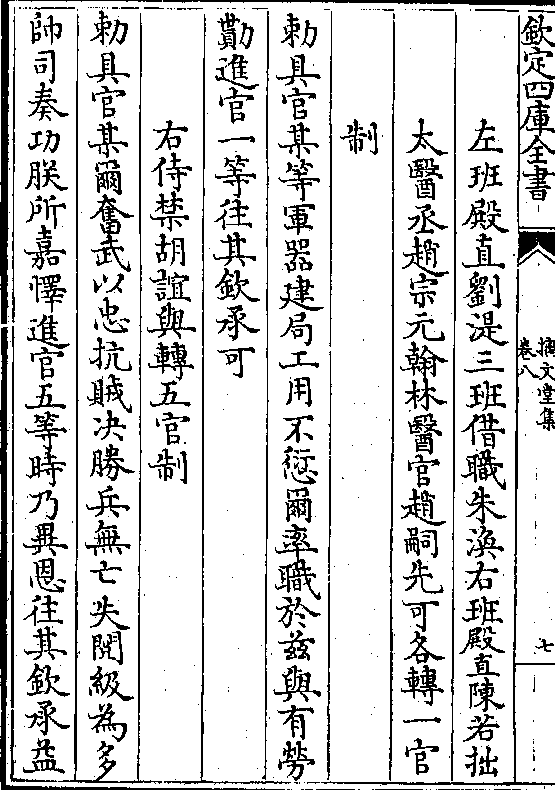 欽定四庫全書
摛文堂集
卷八
七
左班殿直劉湜三班借職朱渙右班殿直陳若拙
太醫丞趙宗元翰林醫官趙嗣先可各轉一官
制
勅具官某等軍器建局工用不愆爾率職於兹與有勞
勩進官一等往其欽承可
右侍禁胡誼與轉五官制
勅具官某爾奮武以忠抗賊决勝兵無亡失閲級為多
帥司奏功朕所嘉懌進官五等時乃異恩往其欽承益